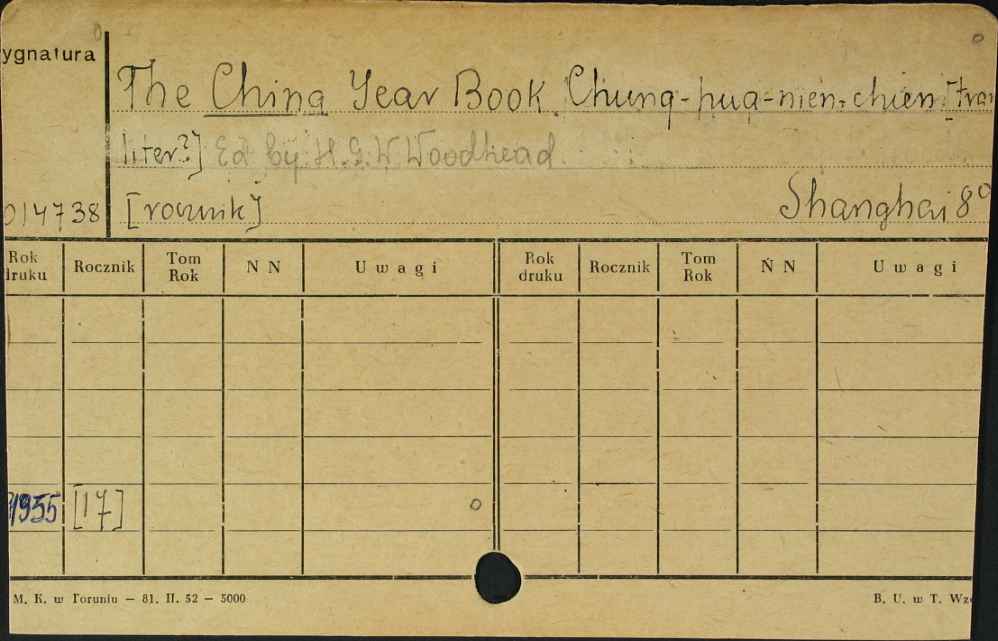 ygnatura
The China Year Book Chung-hua-nien-chien [tran
liter?] Ed by H.G.W Woodhead
014738 [rocznik] Shanghai 8°
Rok druku Rocznik Tom Rok N N Uwagi Rok druku Rocznik Tom Rok N N Uwagi
1935 [17]
M. K. w Toruniu — 81. II. 52 — 5000 B. U. w T. Wz